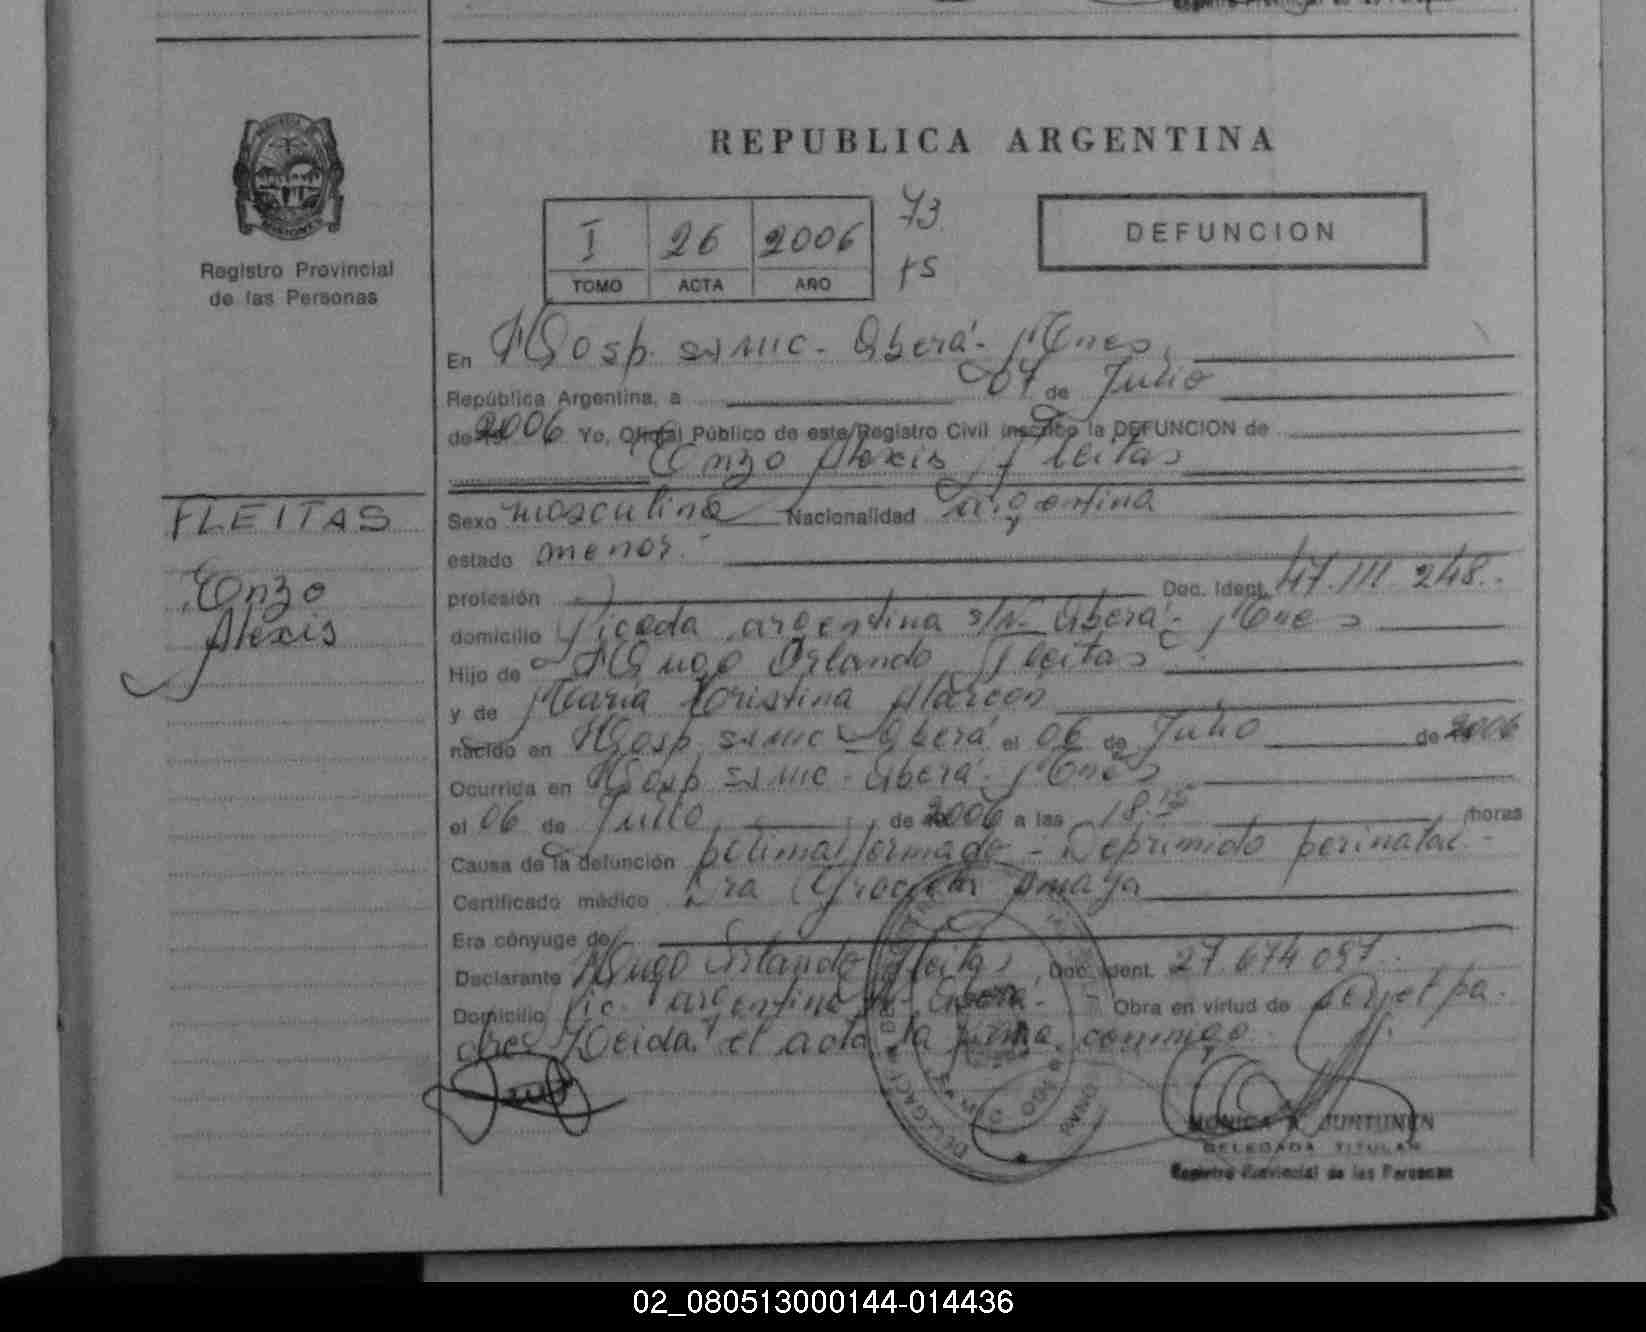 REPUBLICA ARGENTINA
Registro Provincial
de las Personas
I 26 2006 73
TOMO ACTA AÑO 75
DEFUNCION
En Hosp. SAMIC - Oberá - Mnes
República Argentina, a 07 de Julio
de 2006 Yo, Oficial Público de este Registro Civil inscribo la DEFUNCION de
Enzo Alexis Fleitas
FLEITAS
Enzo
Alexis
Sexo masculino Nacionalidad argentina
estado menor.-
profesión Doc. Ident. 47.111.248.-
domicilio Picada argentina s/N- Oberá - Mnes
Hijo de Hugo Orlando Fleitas
y de María Cristina Alarcon
nacido en Hosp SAMIC Oberá el 06 de Julio de 2006
Ocurrida en Hosp SAMIC - Oberá - Mnes
el 06 de Julio de 2006 a las 18.15 horas
Causa de la defunción polimalformado - Deprimido perinatal -
Certificado médico Dra Graciela Amaya
Era cónyuge de
Declarante Hugo Orlando Fleitas Doc. Ident. 27.674.097.
Domicilio Pic. argentina s/N- Oberá - Obra en virtud de ser el pa-
dre Leida el acta la firma conmigo
MONICA A. JUNTUNEN
DELEGADA TITULAR
Registro Provincial de las Personas
02_080513000144-014436